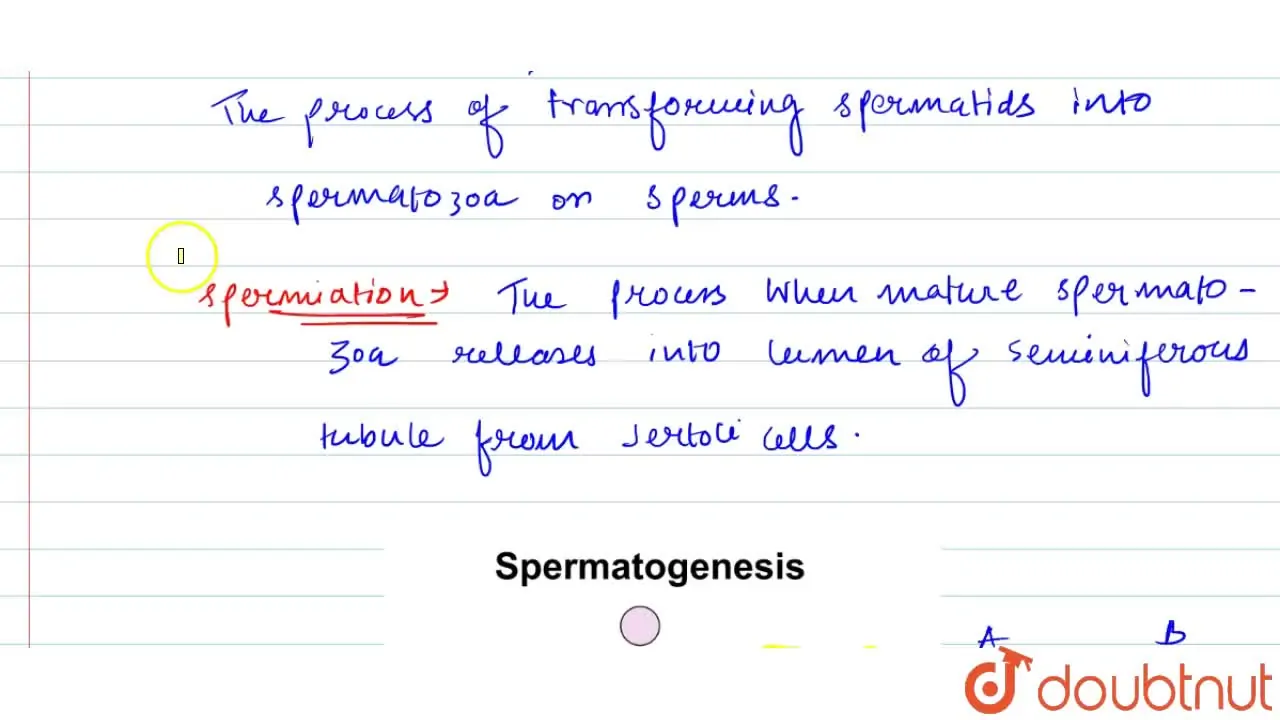 The process of transforming spermatids into
spermatozoa or sperms.
spermiation → The process when mature spermato-
zoa releases into lumen of seminiferous
tubule from sertoli cells.
Spermatogenesis
A B
doubtnut